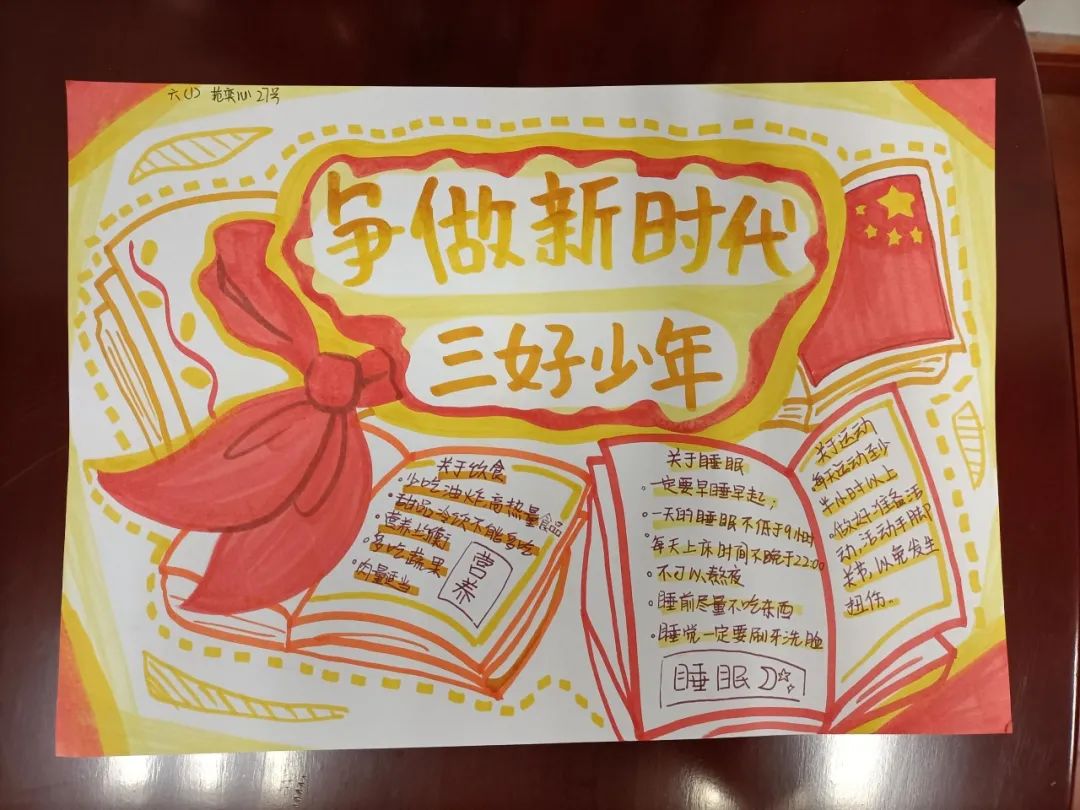 六(1) 范奕心 27号
争做新时代
三好少年
关于饮食
·少吃油炸、高热量食品
·甜品冷饮不能多吃
·营养均衡
·多吃蔬果
·肉量适当
营养
关于睡眠
·一定要早睡早起；
·一天的睡眠不低于9小时
每天上床时间不晚于22:00
·不可以熬夜
·睡前尽量不吃东西
·睡觉一定要刷牙洗脸
睡眠
关于运动
每天运动至少
半小时以上
·做好准备活
动，活动手脚
关节，以免发生
扭伤。